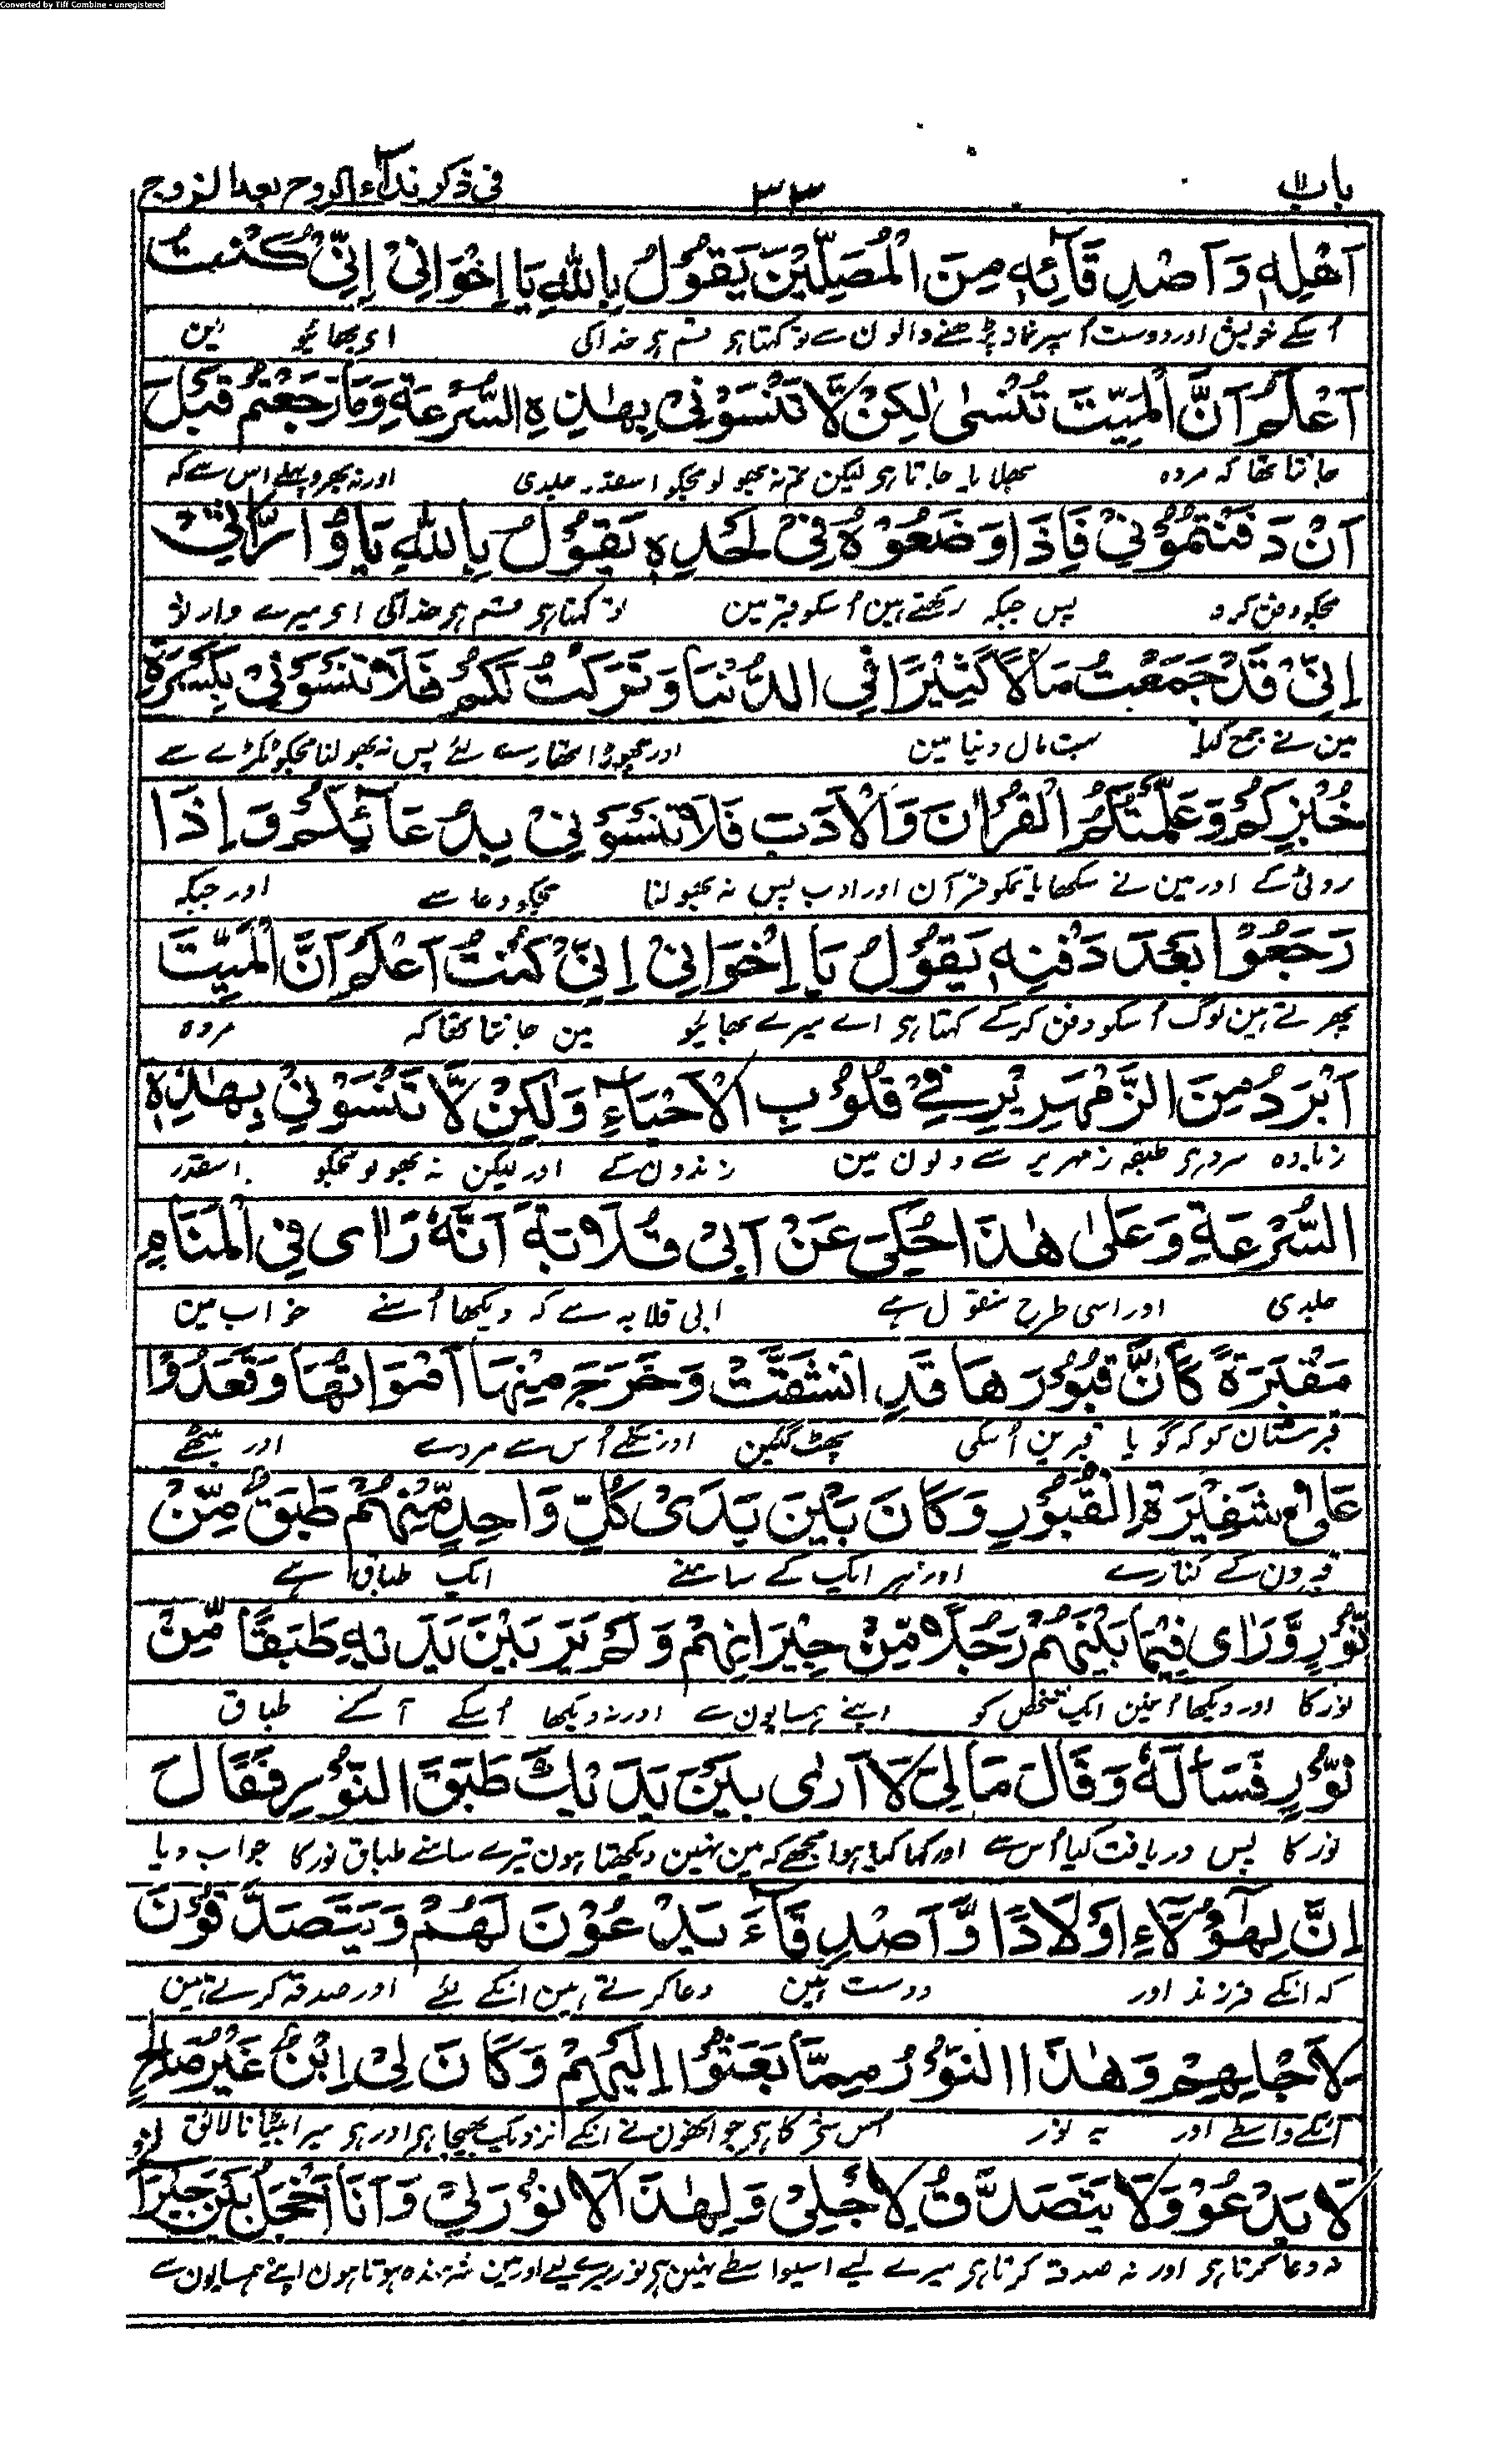 Converted by Tiff Combine - unregistered
باب ١١ ٣٣ فی ذکر نداء الروح بعد الخروج
اَهْلِهٖ وَ اَصْدِقَآئِهٖ مِنَ الْمُصَلِّیْنَ یَقُوْلُ بِاللّٰهِ یَا اِخْوَانِیْ اِنِّیْ کُنْتُ
اُسکے خویش اور دوست اُسپر نماز پڑھنے والون سے تو کہتا ہی قسم ہی خدا کی ای بھائیو مین
اَعْلَمُ اَنَّ الْمَیِّتَ تُنْسٰی لٰکِنْ لَّا تَنْسَوْنِیْ بِهٰذِهِ السُّرْعَةِ وَمَا رَجَعْتُمْ قَبْلَ
جانتا تھا کہ مردہ بھلا یا جاتا ہی لیکن تم نہ بھولو مجکو اسقدر جلدی اور نہ پھرو پہلے اس سے کہ
اَنْ دَفَنْتُمُوْنِیْ فَاِذَا وَضَعُوْهُ فِیْ لَحْدِهٖ یَقُوْلُ بِاللّٰهِ یَا وُرَّاثِیْ
مجکو دفن کرو پس جبکہ رکھتے ہین اُسکو قبر مین تو کہتا ہی قسم ہی خدا کی ای میرے وارثو
اِنِّیْ قَدْ جَمَعْتُ مَالًا کَثِیْرًا فِی الدُّنْیَا وَ تَرَکْتُ لَکُمْ فَلَا تَنْسَوْنِیْ بِکِسْرَةِ
مین نے جمع کیا بہت مال دنیا مین اور چھوڑا تمھارے لئے پس نہ بھولنا مجکو ٹکڑے سے
خُبْزِکُمْ وَ عَلَّمْتُکُمُ الْقُرْاٰنَ وَالْاَدَبَ فَلَا تَنْسَوْنِیْ بِدُعَآئِکُمْ وَ اِذَا
روٹی کے اور مین نے سکھایا تمکو قرآن اور ادب پس نہ بھولنا مجکو دعا سے اور جبکہ
رَجَعُوْا بَعْدَ دَفْنِهٖ یَقُوْلُ یَا اِخْوَانِیْ اِنِّیْ کُنْتُ اَعْلَمُ اَنَّ الْمَیِّتَ
پھرتے ہین لوگ اُسکو دفن کرکے کہتا ہی اے میرے بھائیو مین جانتا تھا کہ مردہ
اَبْرَدُ مِنَ الزَّمْهَرِیْرِ فِیْ قُلُوْبِ الْاَحْیَآءِ وَلٰکِنْ لَّا تَنْسَوْنِیْ بِهٰذِهِ
زیادہ سرد ہی طبقہ زمہریر سے دلون مین زندون کے اور لیکن نہ بھولو مجکو اسقدر
السُّرْعَةِ وَ عَلٰی هٰذَا حُکِیَ عَنْ اَبِیْ قُلَابَةَ اَنَّهٗ رَاٰی فِی الْمَنَامِ
جلدی اور اسی طرح منقول ہے ابی قلابہ سے کہ دیکھا اُسنے خواب مین
مَقْبَرَةً کَاَنَّ قُبُوْرَهَا قَدِ انْشَقَّتْ وَ خَرَجَ مِنْهَا اَمْوَاتُهَا وَ قَعَدُوْا
قبرستان کو کہ گویا قبرین اُسکی پھٹ گئین اور نکلے اُس سے مردے اور بیٹھے
عَلٰی شَفِیْرَةِ الْقُبُوْرِ وَ کَانَ بَیْنَ یَدَیْ کُلِّ وَاحِدٍ مِّنْهُمْ طَبَقٌ مِّنْ
قبرون کے کنارے اور ہر ایک کے سامنے ایک طباق ہے
نُّوْرٍ وَّ رَاٰی فِیْمَا بَیْنَهُمْ رَجُلًا مِّنْ جِیْرَانِهِمْ وَ لَمْ یَرَ بَیْنَ یَدَیْهِ طَبَقًا مِّنْ
نور کا اور دیکھا اُنمین ایک شخص کو اپنے ہمسایون سے اور نہ دیکھا اُسکے آگے طباق
نُّوْرٍ فَسَاَلَهٗ وَ قَالَ مَا لِیْ لَا اَرٰی بَیْنَ یَدَیْكَ طَبَقَ النُّوْرِ فَقَالَ
نور کا پس دریافت کیا اُس سے اور کہا کیا ہوا مجھے کہ مین نہین دیکھتا ہون تیرے سامنے طباق نور کا جواب دیا
اِنَّ لِهٰٓؤُلَآءِ اَوْلَادًا وَّ اَصْدِقَآءَ یَدْعُوْنَ لَهُمْ وَ یَتَصَدَّقُوْنَ
کہ انکے فرزند اور دوست ہین دعا کرتے ہین انکے لئے اور صدقہ کرتے ہین
لِاَجْلِهِمْ وَ هٰذَا النُّوْرُ مِمَّا بَعَثُوْا اِلَیْهِمْ وَ کَانَ لِیْ اِبْنٌ غَیْرُ صَالِحٍ
انکے واسطے اور یہ نور اُس چیز کا ہی جو انھون نے انکے نزدیک بھیجا ہی اور ہی میرا بیٹا نالائق
لَا یَدْعُوْ وَلَا یَتَصَدَّقُ لِاَجْلِیْ وَ لِهٰذَا لَا نُوْرَ لِیْ وَ اَنَا اَخْجَلُ بَیْنَ جِیْرَا
نہ دعا کرتا ہی اور نہ صدقہ کرتا ہی میرے لیے اسیواسطے نہین ہی نور میرے لیے اور مین شرمندہ ہوتا ہون اپنے ہمسایون سے